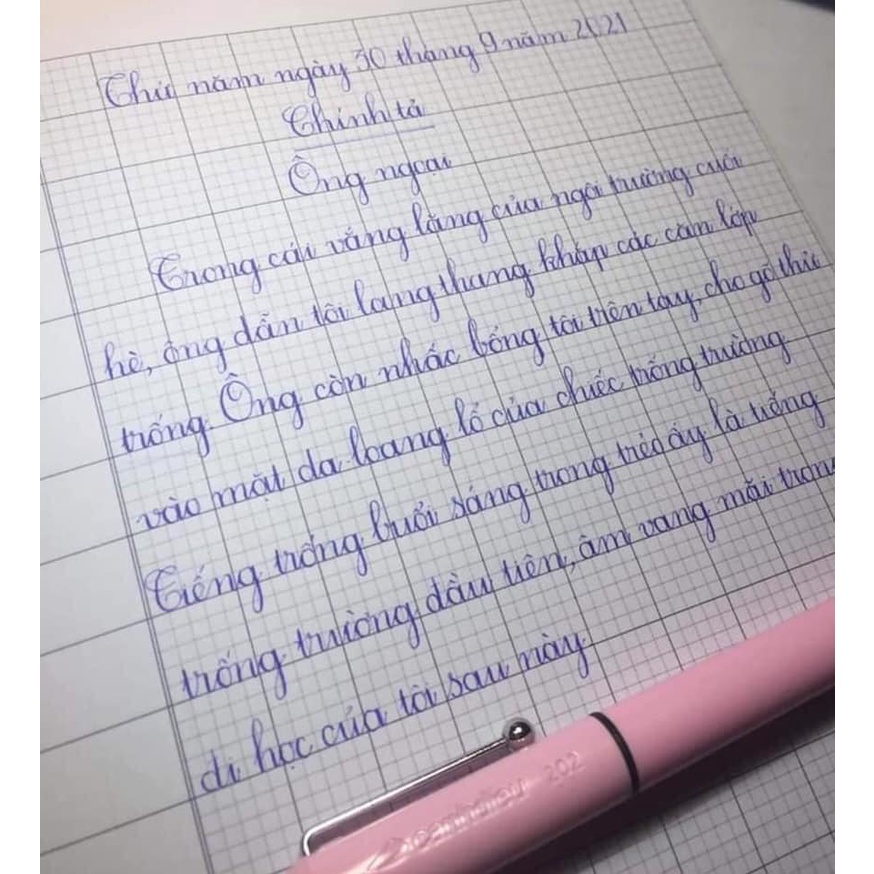 Thứ năm ngày 30 tháng 9 năm 2021
Chính tả
Ông ngoại
Trong cái vắng lặng của ngôi trường cuối
hè, ông dẫn tôi lang thang khắp các căn lớp
trống. Ông còn nhấc bổng tôi trên tay, cho gõ thử
vào mặt da loang lổ của chiếc trống trường.
Tiếng trống buổi sáng trong trẻo ấy là tiếng
trống trường đầu tiên, âm vang mãi trong
đi học của tôi sau này.
202